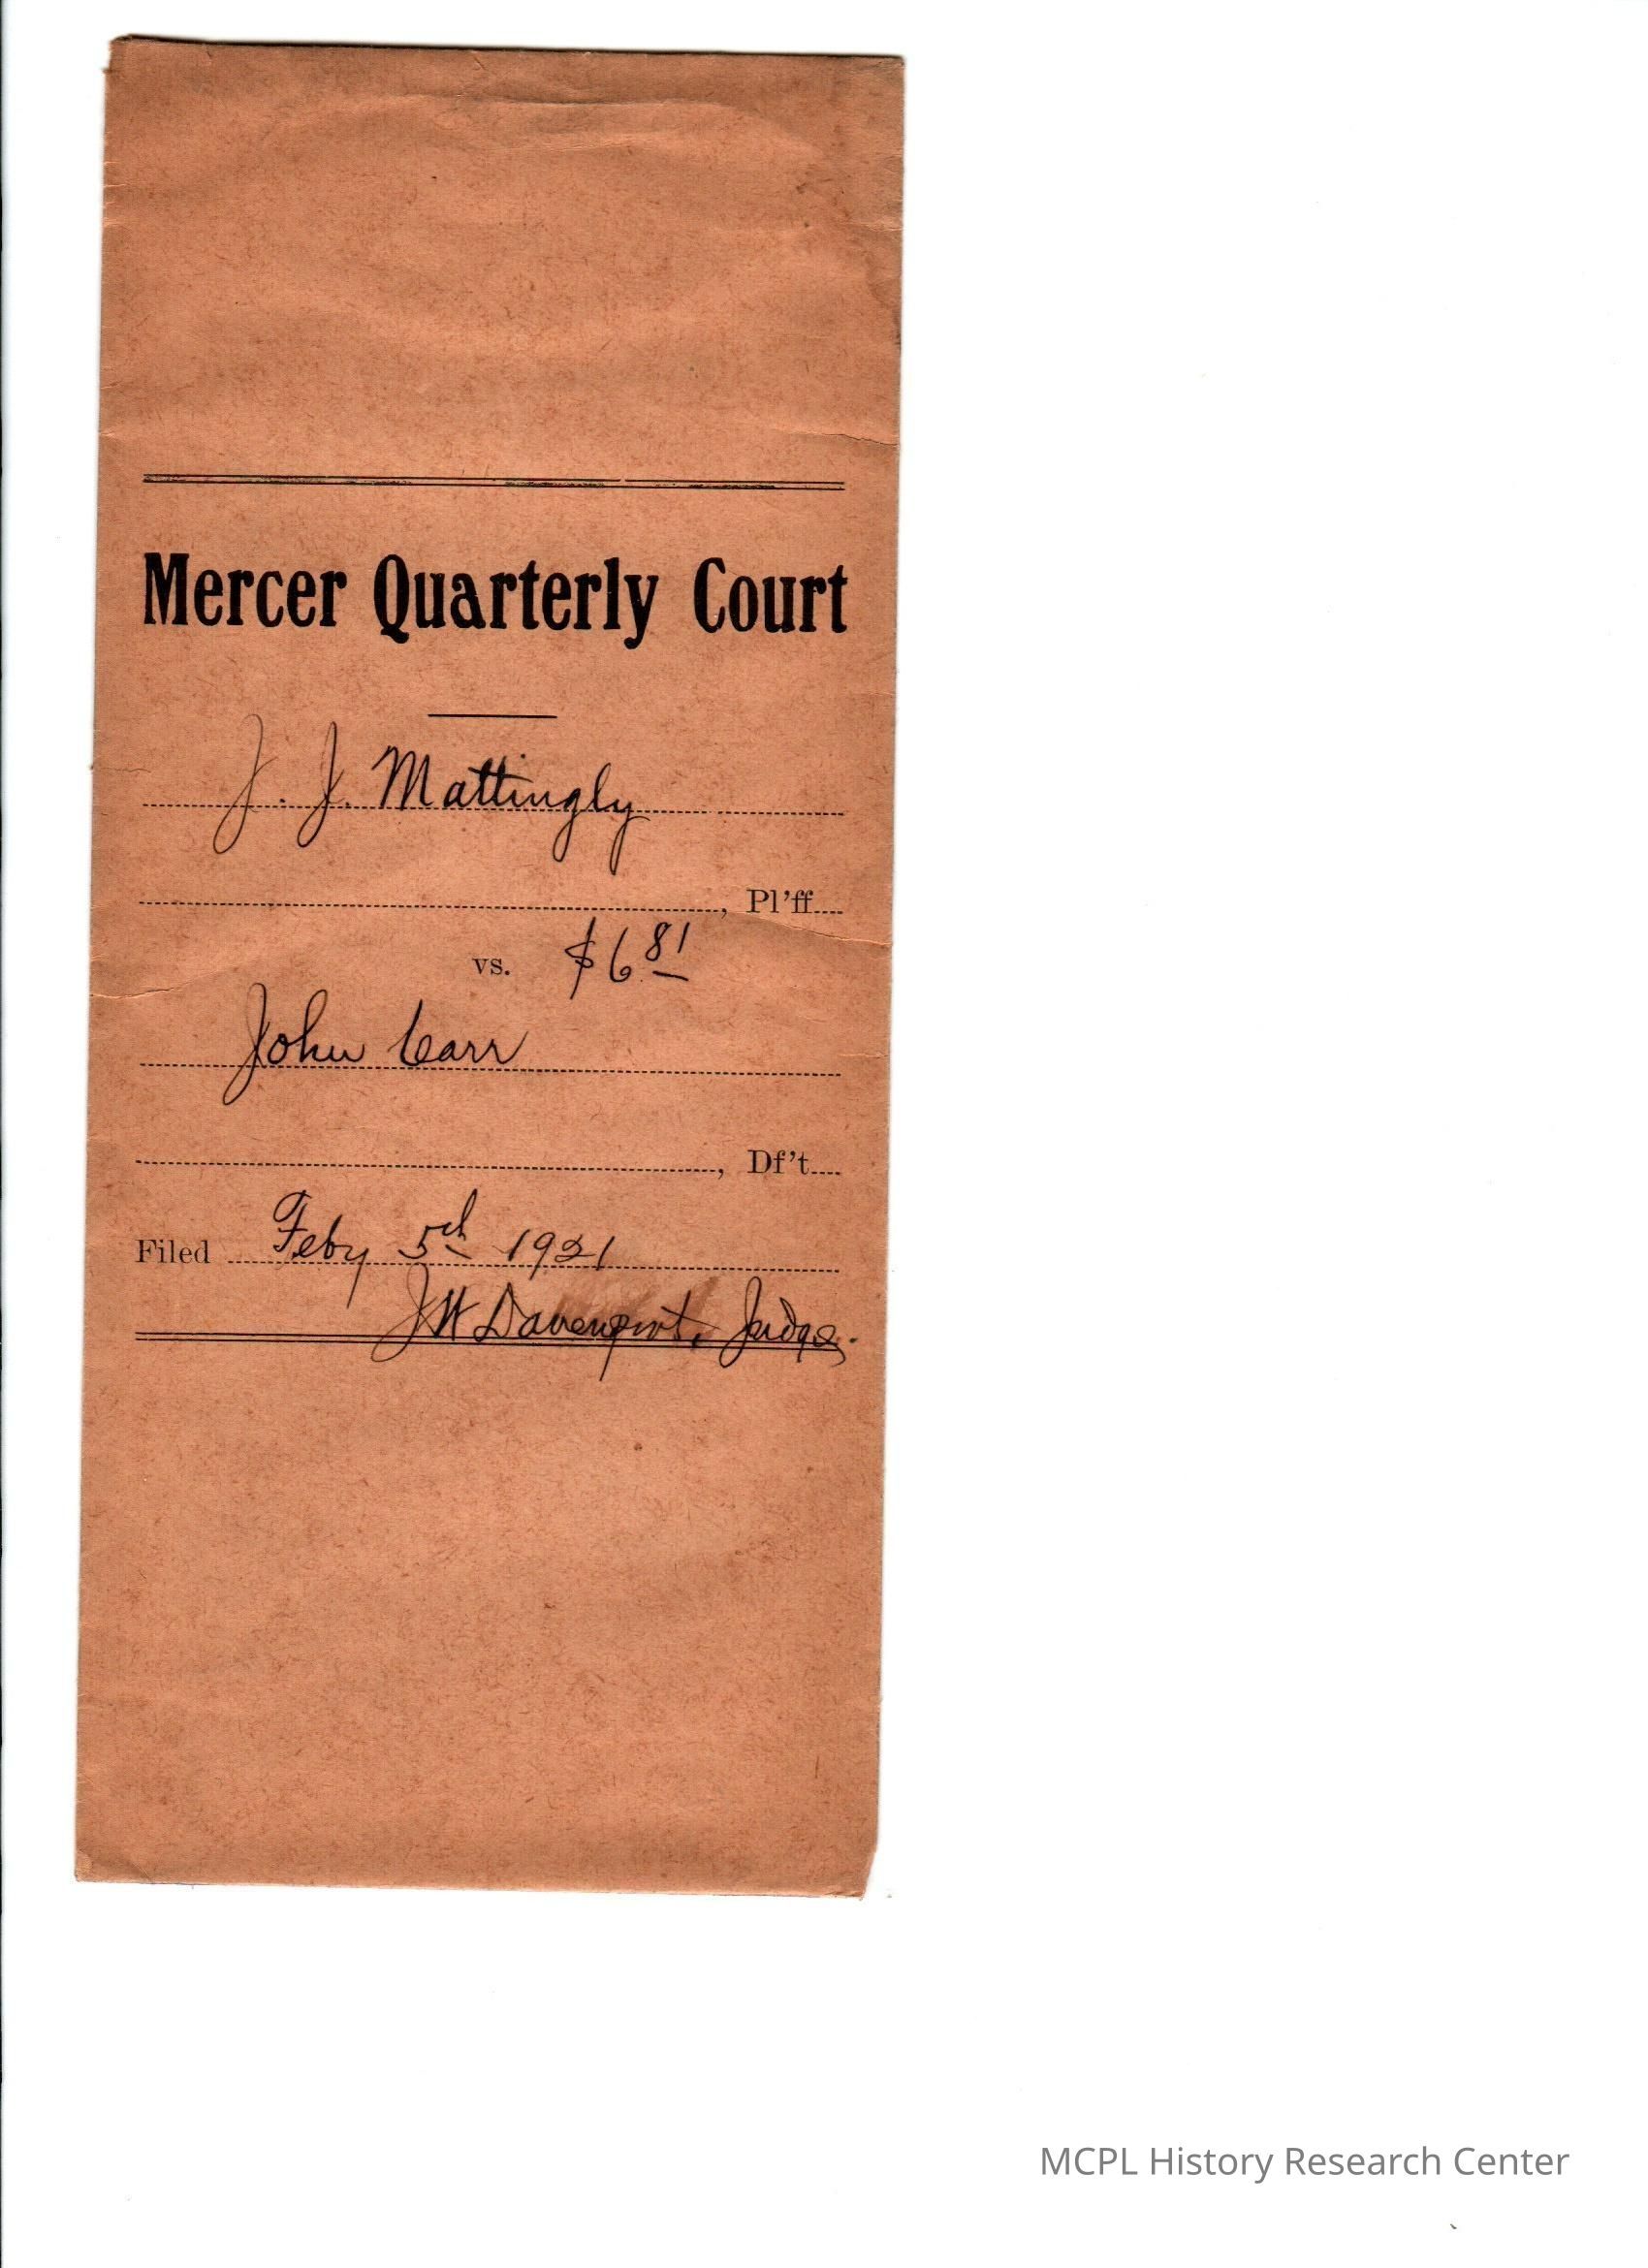 Mercer Quarterly Court
J. J. Mattingly
, Pl'ff
vs. $6.81
John Carr
, Df't
Filed Feby 5th 1921
J W Davenport, Judge.
MCPL History Research Center